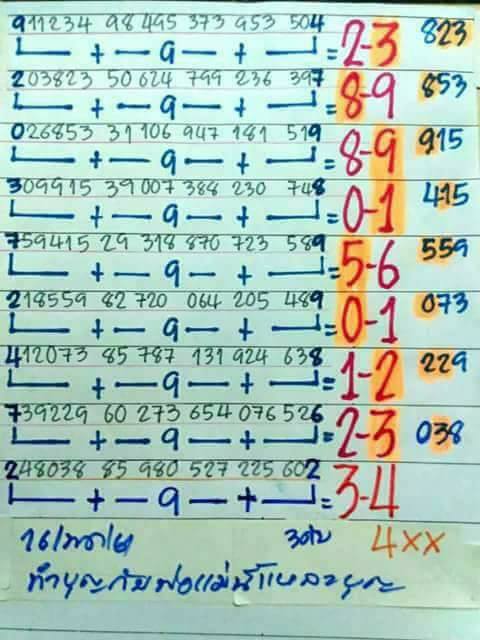 911234 98 495 373 953 504
+ 9 + = 2-3 823
203823 50 624 799 236 397
+ 9 + = 8-9 853
026853 31 106 947 181 519
+ 9 + = 8-9 915
309915 39 007 388 230 748
+ 9 + = 0-1 415
759415 29 318 870 723 589
+ 9 + = 5-6 559
218559 82 720 064 205 489
+ 9 + = 0-1 073
412073 85 787 131 924 638
+ 9 + = 1-2 229
739229 60 273 654 076 526
+ 9 + = 2-3 038
248038 85 980 527 225 602
+ 9 + = 3-4
4xx
ทำบุญกับพ่อแม่